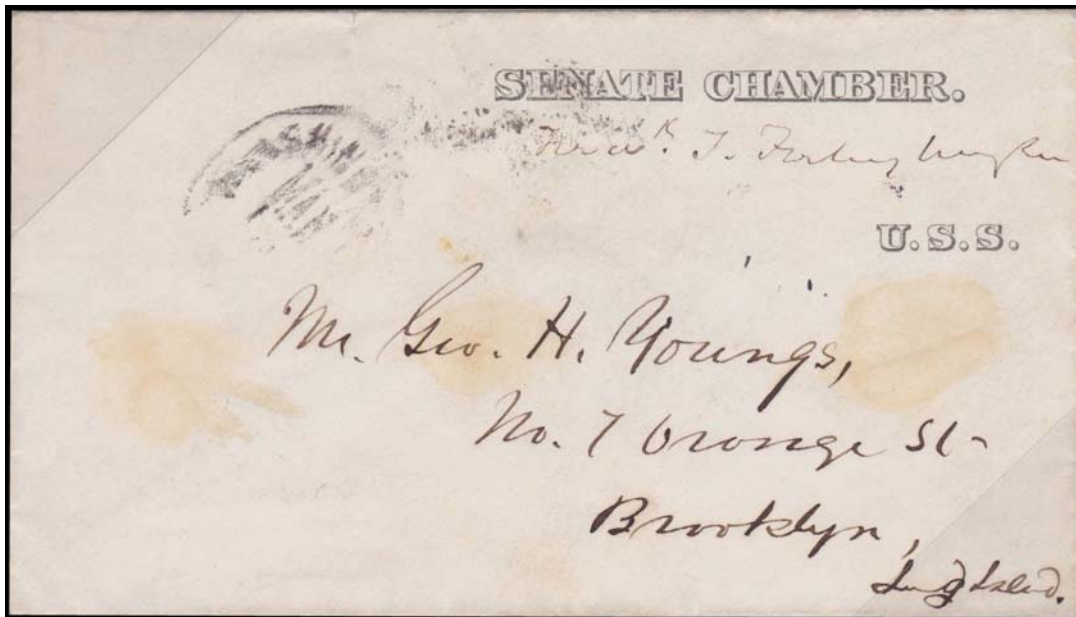 SENATE CHAMBER.
Fred<sup>k</sup>. T. Frelinghuysen
U.S.S.
WASHIN
MAY
Mr. Geo. H. Youngs,
No. 7 Orange St-
Brooklyn,
Long Island.